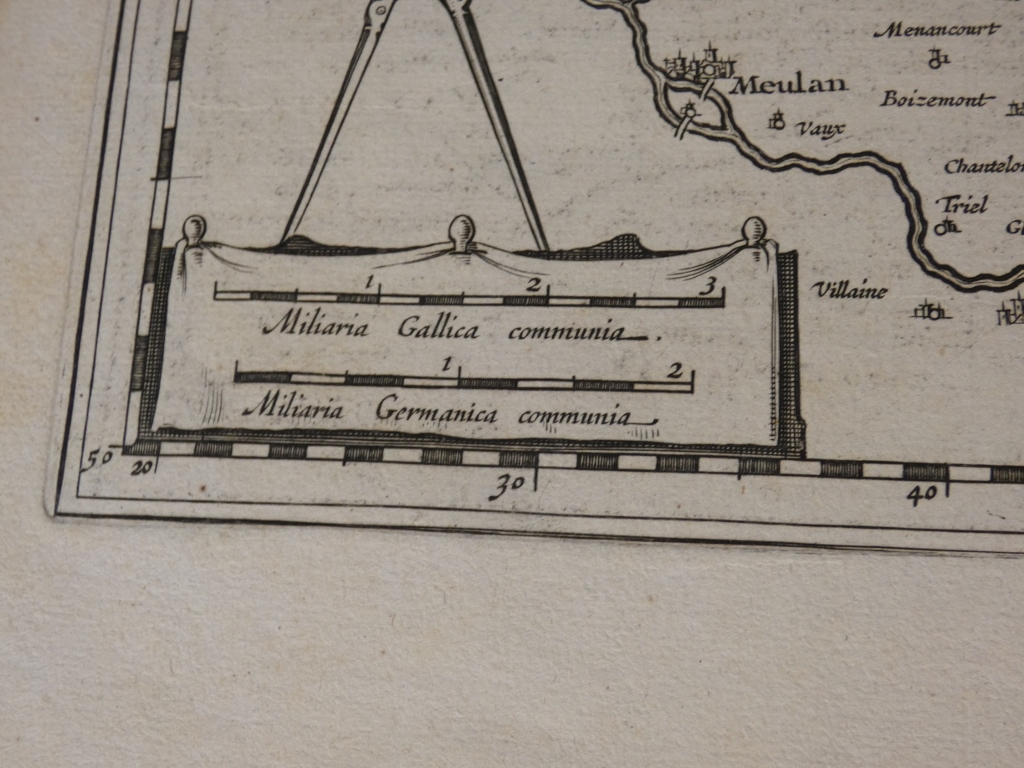 Menancourt
Meulan
Boizemont
Vaux
Triel
Villaine
1 2 3
Miliaria Gallica communia
1 2
Miliaria Germanica communia
50
20 30 40